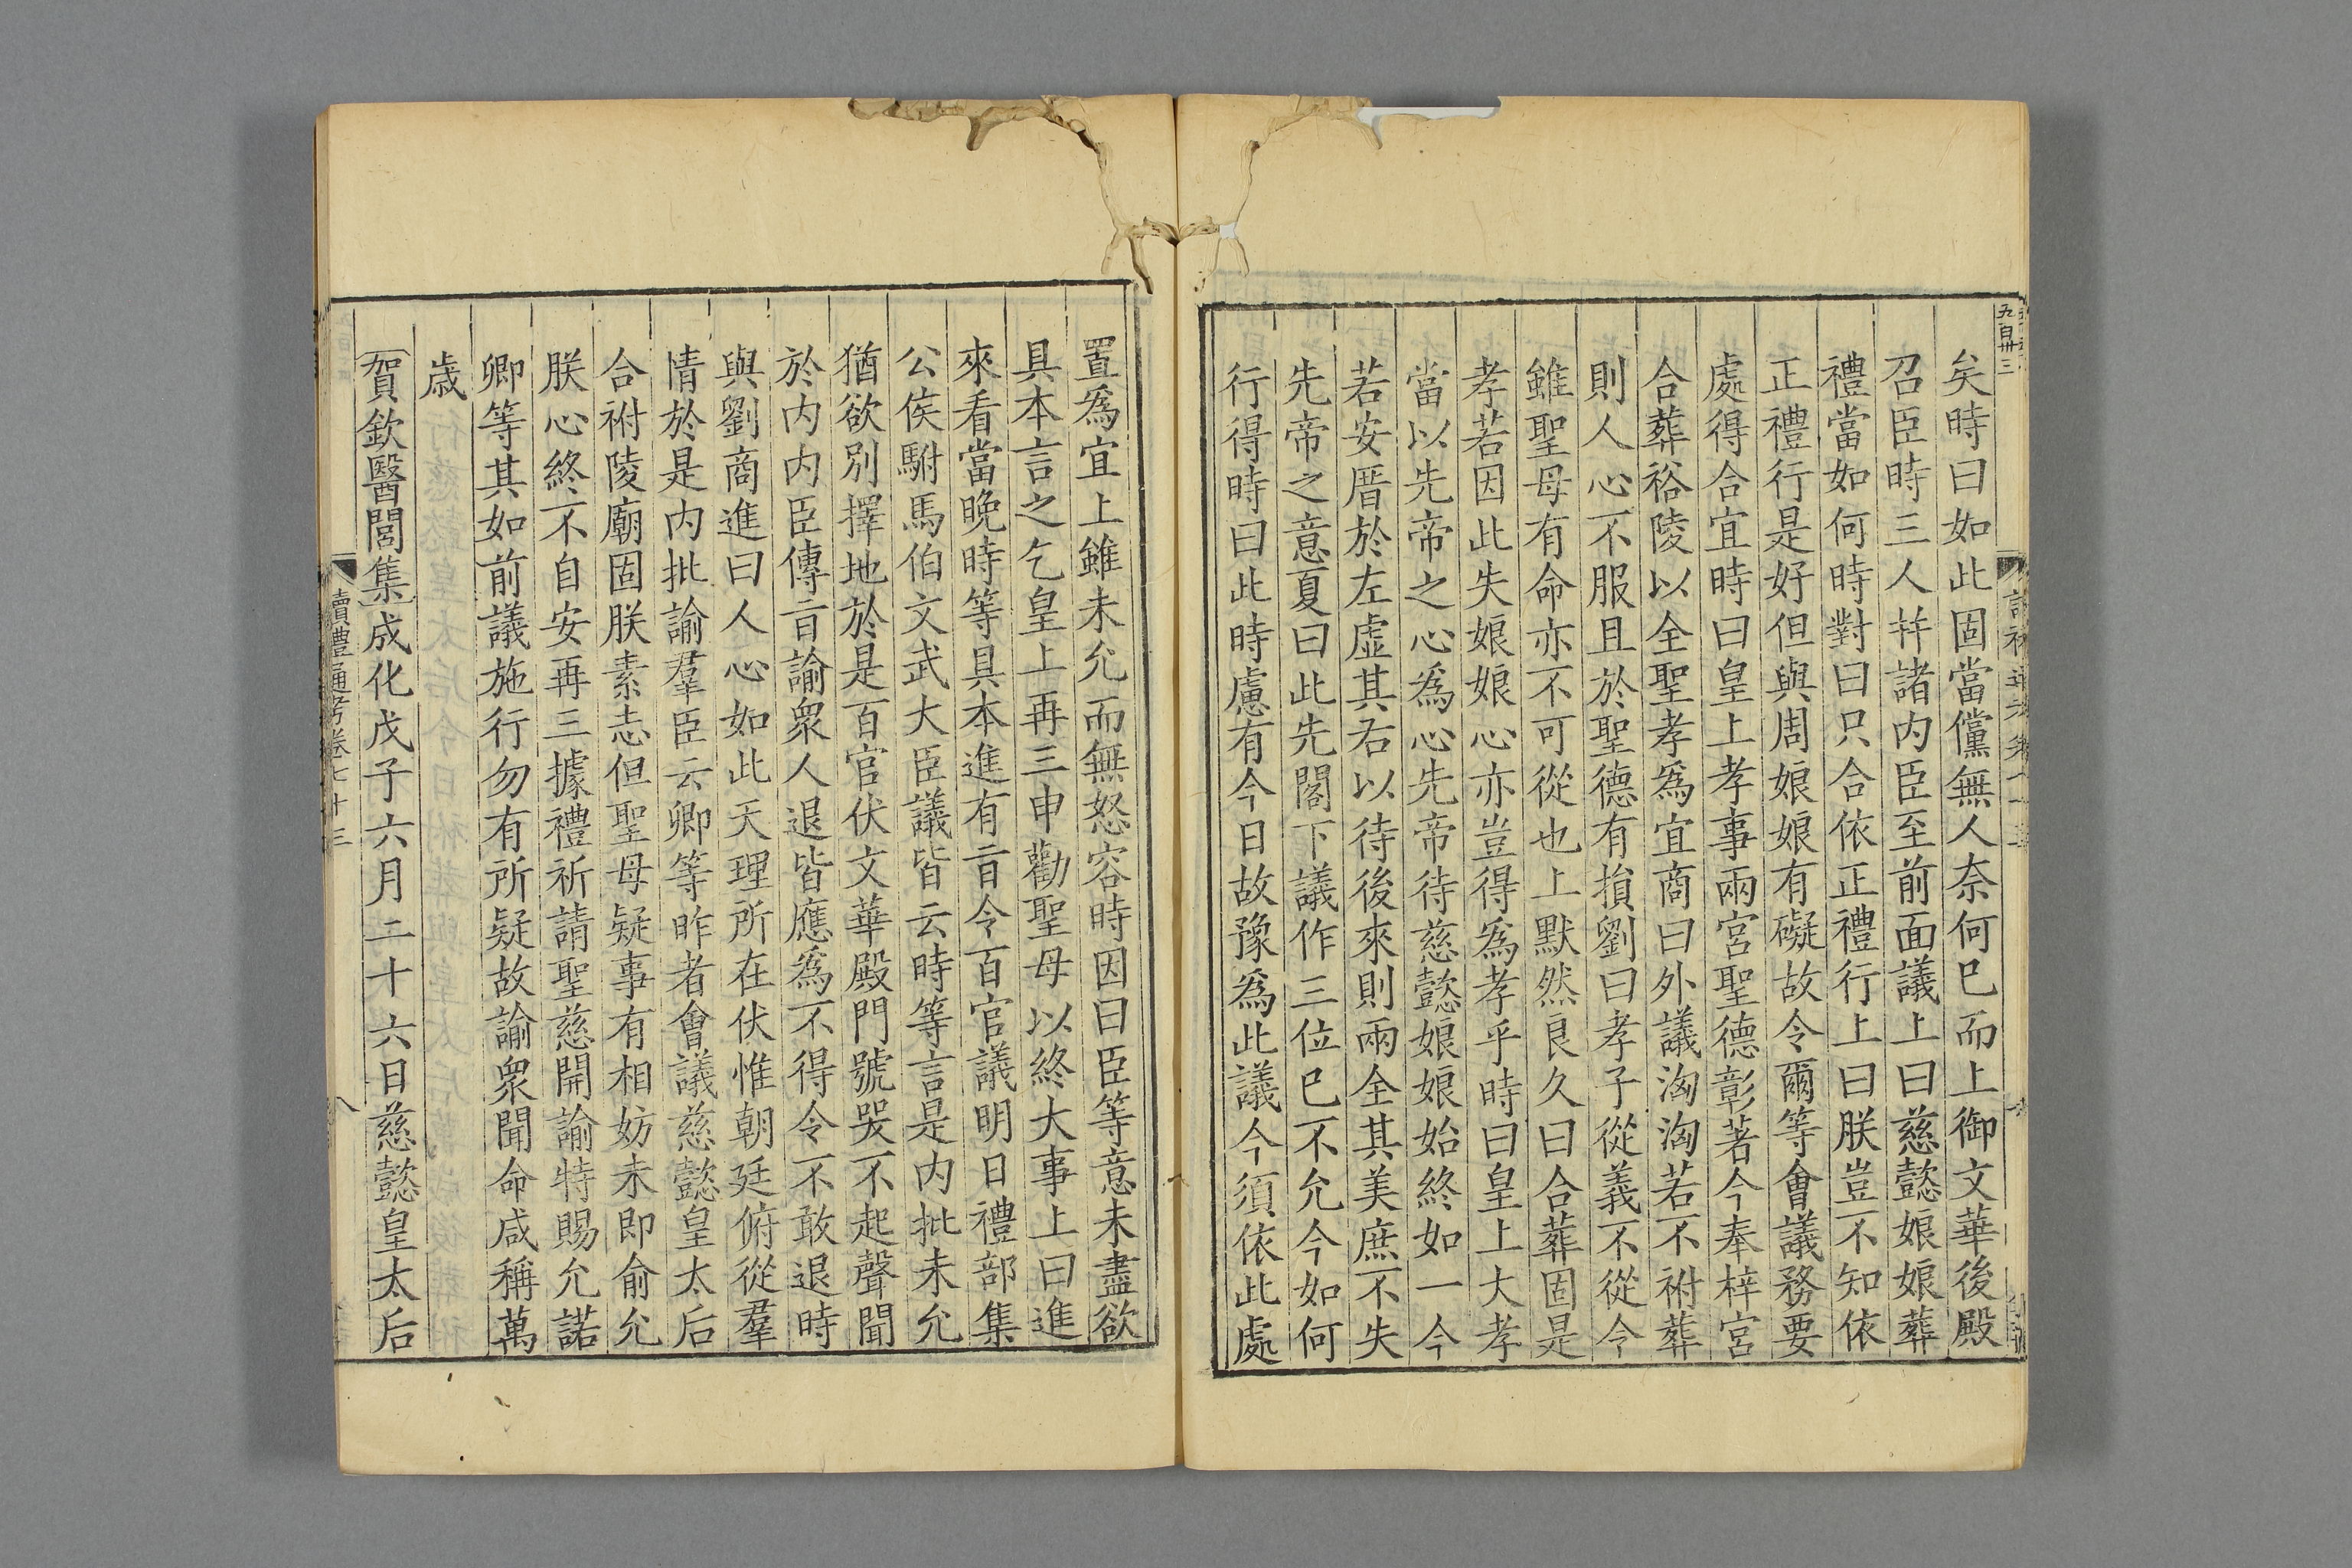 矣時曰如此固當儻無人奈何巳而上御文華後殿
召臣時三人幷諸内臣至前面議上曰慈懿娘娘葬
禮當如何時對曰只合依正禮行上曰朕豈不知依
正禮行是好但與周娘娘有礙故令爾等會議務要
處得合宜時曰皇上孝事兩宮聖德彰著今奉梓宮
合葬裕陵以全聖孝爲宜商曰外議洶洶若不祔葬
則人心不服且於聖德有損劉曰孝子從義不從令
雖聖母有命亦不可從也上默然良久曰合葬固是
孝若因此失娘娘心亦豈得爲孝乎時曰皇上大孝
當以先帝之心爲心先帝待慈懿娘娘始終如一今
若安厝於左虚其右以待後來則兩全其美庶不失
先帝之意夏曰此先閣下議作三位巳不允今如何
行得時曰此時慮有今日故豫爲此議今須依此處
置爲宜上雖未允而無怒容時因曰臣等意未盡欲
具本言之乞皇上再三申勸聖母以終大事上曰進
來看當晚時等具本進有㫖令百官議明日禮部集
公侯駙馬伯文武大臣議皆云時等言是内批未允
猶欲別擇地於是百官伏文華殿門號哭不起聲聞
於内内臣傳㫖諭衆人退皆應爲不得令不敢退時
與劉商進曰人心如此天理所在伏惟朝廷俯從羣
情於是内批諭羣臣云卿等昨者會議慈懿皇太后
合祔陵廟固朕素志但聖母疑事有相妨未即俞允
朕心終不自安再三據禮祈請聖慈開諭特賜允諾
卿等其如前議施行勿有所疑故諭衆聞命咸稱萬
歲
賀欽醫閭集成化戊子六月二十六日慈懿皇太后
讀禮通考卷七十三
八